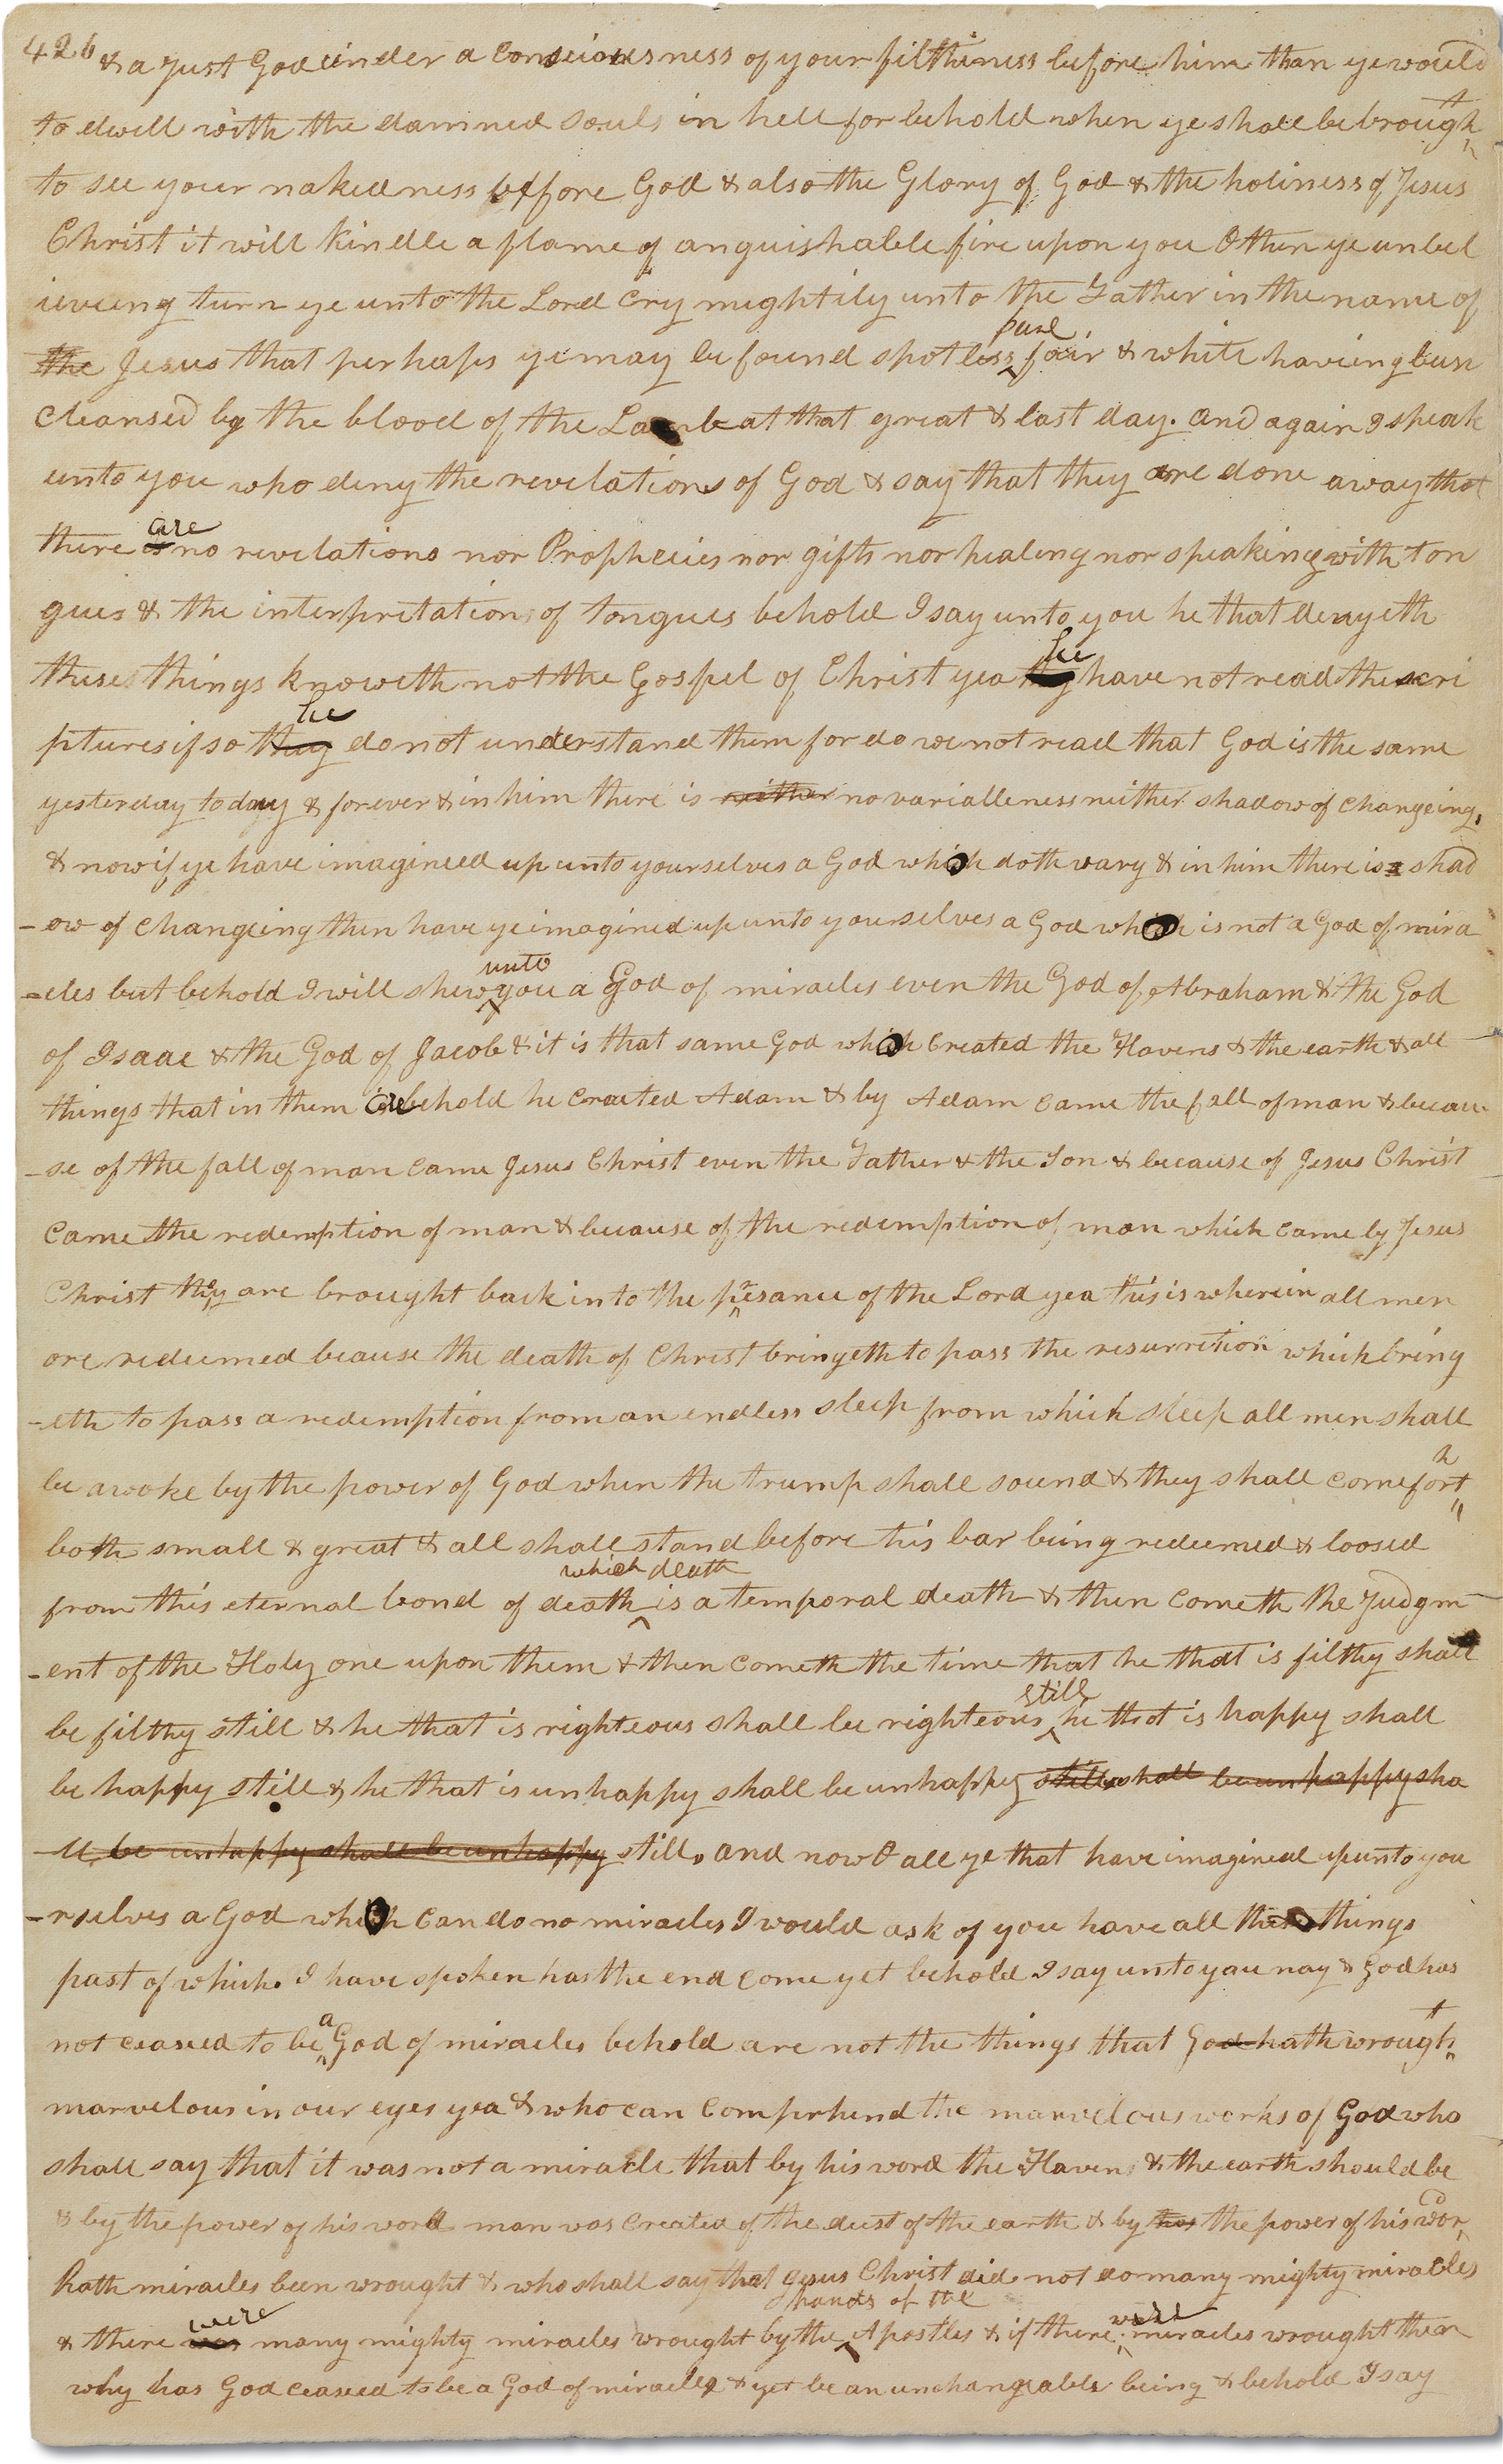 426 & a Just God under a consciousness of your filthiness before him than ye would
to dwell with the damned souls in hell for behold when ye shall be brought
to see your nakedness before God & also the Glory of God & the holiness of Jesus
Christ it will kindle a flame of anguishable fire upon you O then ye unbel
ieveing turn ye unto the Lord cry mightily unto the Father in the name of
the Jesus that perhaps ye may be found spotless pure fair & white haveing been
cleansed by the blood of the Lamb at that great & last day. and again I speak
unto you who deny the revelations of God & say that they are done away that
there are no revelations nor Prophecies nor gifts nor healing nor speaking with ton
gues & the interpretation of tongues behold I say unto you he that denyeth
these things knoweth not the Gospel of Christ yea they he have not read the scri
ptures if so they he do not understand them for do we not read that God is the same
yesterday today & forever & in him there is neither no variableness neither shadow of changeing,
& now if ye have imagineed up unto yourselves a God which doth vary & in him there is shad
-ow of changeing then have ye imagined up unto yourselves a God which is not a God of mira
-cles but behold I will shew unto you a God of miracles even the God of Abraham & the God
of Isaac & the God of Jacob & it is that same God which created the Havens & the earth & all
things that in them are behold he craeted Adam & by Adam came the fall of man & becau
-se of the fall of man came Jesus Christ even the Father & the Son & because of Jesus Christ
came the redemption of man & because of the redemption of man which came by Jesus
Christ they are brought back into the presance of the Lord yea this is wherein all men
are redeemed beause the death of Christ bringeth to pass the resurrection which bring
-eth to pass a redemption from an endless sleep from which sleep all men shall
be awoke by the power of God when the trump shall sound & they shall come forth
both small & great & all shall stand before his bar being redeemed & loosed
from this eternal bond of death which death is a temporal death & then cometh the Judgm
-ent of the Holy one upon them & then cometh the time that he that is filthy shall
be filthy still & he that is righteous shall be righteous still he that is happy shall
be happy still & he that is unhappy shall be unhappy still shall be unhappy sha
-ll be unhappy shall be unhappy still. and now O all ye that have imagined up unto you
-rselves a God which can do no miracles I would ask of you have all these things
past of which I have spoken has the end come yet behold I say unto you nay & God has
not ceased to be a God of miracles behold are not the things that God hath wrought
marvelous in our eyes yea & who can comprhend the marvelous works of God who
shall say that it was not a miracle that by his word the Haven & the earth should be
& by the power of his word man was created of the dust of the earth & by his the power of his word
hath miracles been wrought & who shall say that Jesus Christ did not do many mighty miracles
& there was were many mighty miracles wrought by the hands of the Apostles & if there were miracles wrought then
why has God ceased to be a God of miracles & yet be an unchangeable being & behold I say